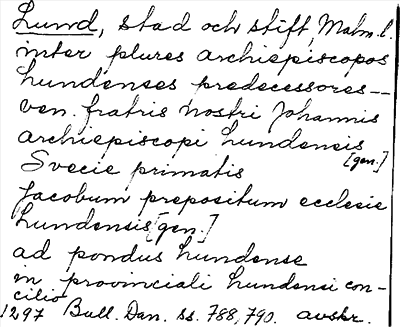 Lund, stad och stift, Malm.l.
inter plures archiepiscopos
lundenses predecessores --
ven. fratris nostri Johannis
archiepiscopi lundensis
[gen.]
Svecie primatis
Jacobum prepositum ecclesie
lundensis [gen.]
ad pondus lundense
in provinciali lundensi con-
cilio
1297 Bull. Dan. ss. 788, 790. avskr.